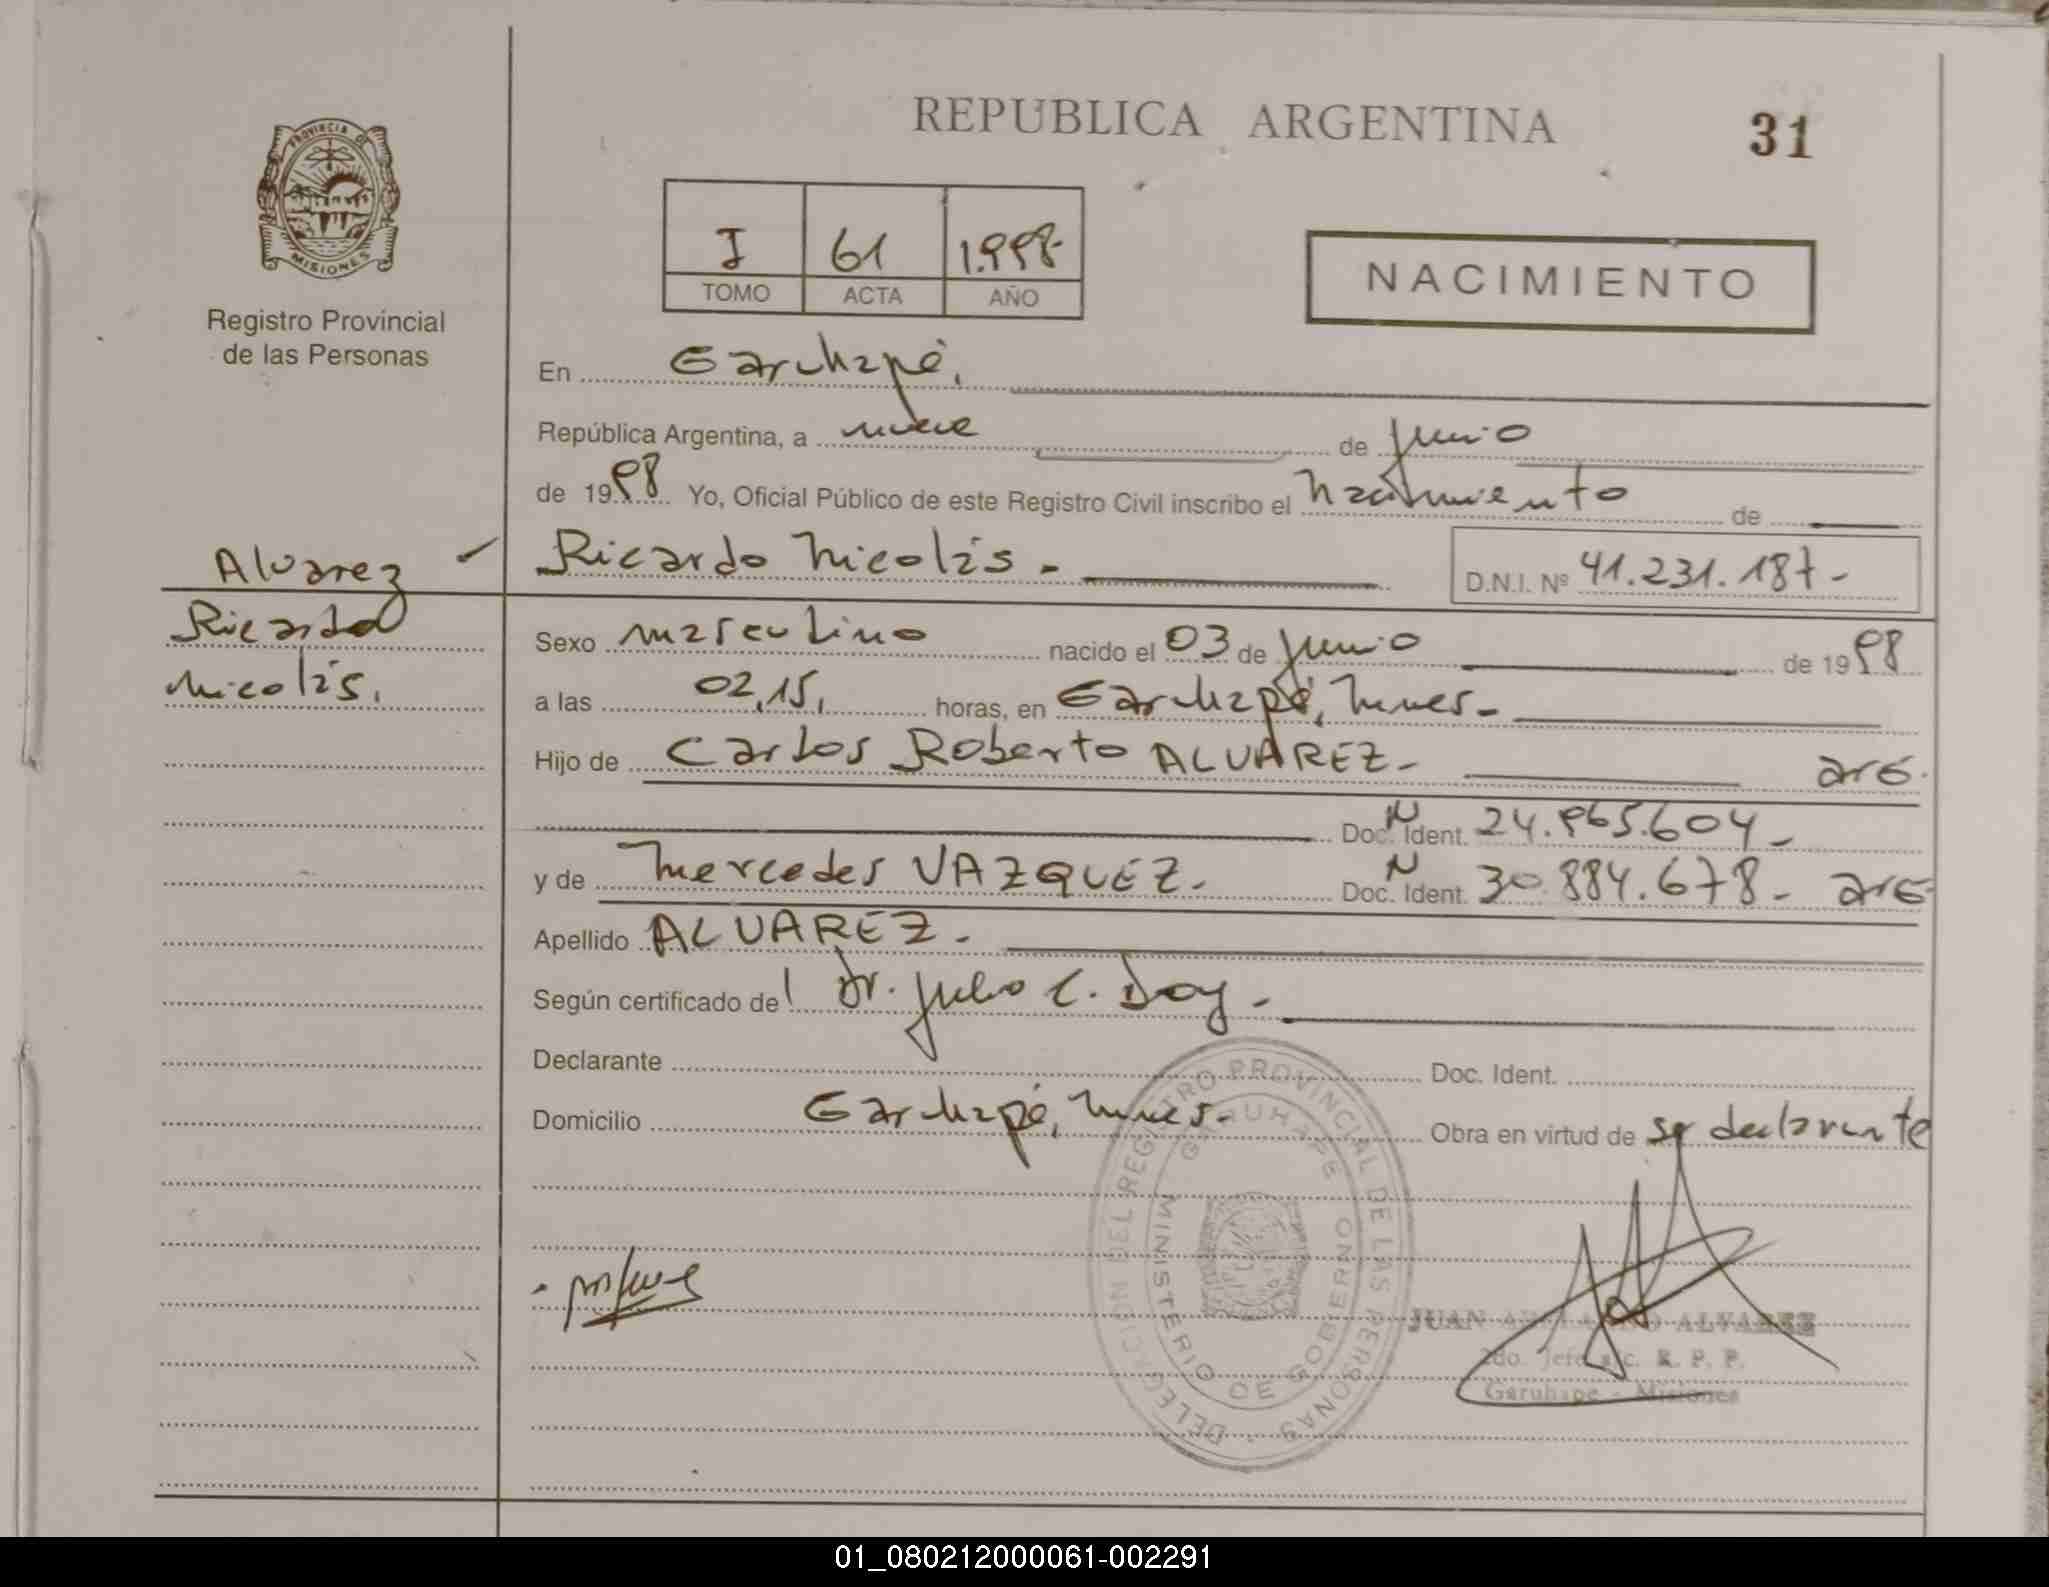 REPUBLICA ARGENTINA
31
PROVINCIA DE
MISIONES
Registro Provincial
de las Personas
I 61 1.998
TOMO ACTA AÑO
NACIMIENTO
En Garuhapé,
República Argentina, a nueve de Junio
de 1998 Yo, Oficial Público de este Registro Civil inscribo el nacimiento de
Alvarez Ricardo Nicolás. D.N.I. Nº 41.231.187-
Ricardo
Nicolás.
Sexo masculino nacido el 03 de Junio de 1998
a las 02,15, horas, en Garuhapé, Mnes-
Hijo de Carlos Roberto ALVAREZ- arg.
Doc. Ident. N 24.965.604-
y de Mercedes VAZQUEZ- Doc. Ident. N 30.884.678- arg
Apellido ALVAREZ-
Según certificado de Dr. Julio C. Doy-
Declarante Doc. Ident.
Domicilio Garuhapé, Mnes- Obra en virtud de ser declarante
DELEGACION DEL REGISTRO PROVINCIAL DE LAS PERSONAS
GARUHAPE
MINISTERIO DE GOBIERNO
JUAN ALVAREZ
2do. Jefe R. P. P.
Garuhape - Misiones
01_080212000061-002291